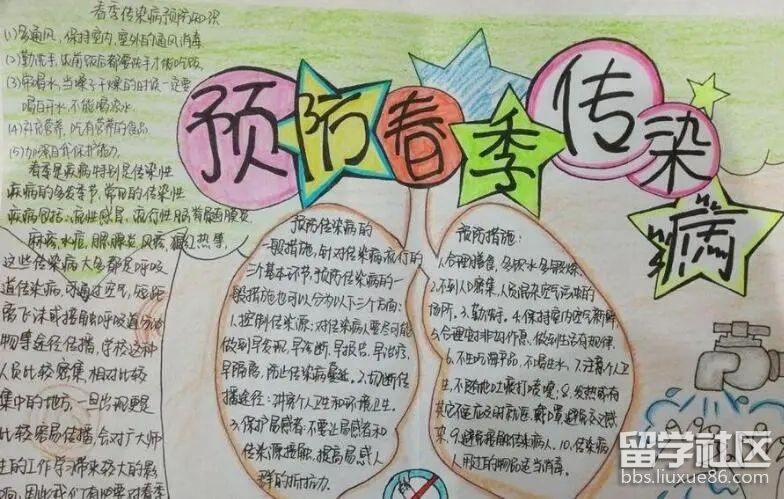 春季传染病预防知识
(1)多通风,保持室内,室外的通风消毒
(2)勤洗手,饭前饭后都要洗手才能吃饭
(3)常喝水,当嗓子干燥的时候一定要
喝白开水,不能喝凉水.
(4)补充营养,吃有营养的食品
(5)加深自我保护能力.
春季是疾病特别是传染性
疾病的多发季节,常见的传染性
疾病包括:流行性感冒,流行性脑脊髓膜炎,
麻疹,水痘,腮腺炎,风疹,猩红热等,
这些传染病大多都是呼吸
道传染病,可通过空气,短距
离飞沫或接触呼吸道分泌
物等途径传播,学校这种
人员比较密集,相对比较
集中的地方,一旦出现更是
比较容易传播,会对广大师
生的工作学习带来较大的影
响,因此我们有必要对春季
预防春季传染病
预防传染病的
一般措施,针对传染病流行的
三个基本环节,预防传染病的一
般措施也可以分为以下三个方面:
1.控制传染源:对传染病人要尽可能
做到早发现,早诊断,早报告,早治疗,
早隔离,防止传染病蔓延.2.切断传
播途径:讲究个人卫生和环境卫生.
3.保护易感者:不要让易感者和
传染源接触,提高易感人
群的抵抗力.
预防措施:
1.合理膳食,多饮水多锻炼.
2.不到人口密集,人员混杂空气污染的
场所.3.勤洗手.4.保持室内空气新鲜
5.合理安排好工作息,做到生活有规律.
6.不生吃海产品,不喝生水,7.注意个人卫
生,不随地吐痰打喷嚏;8.发热或有
其它不适及时就医,戴口罩,避免交叉感
染.9.避免接触传染病人.10.传染病
人用过的物品适当消毒.
留学社区
bbs.liuxue86.com